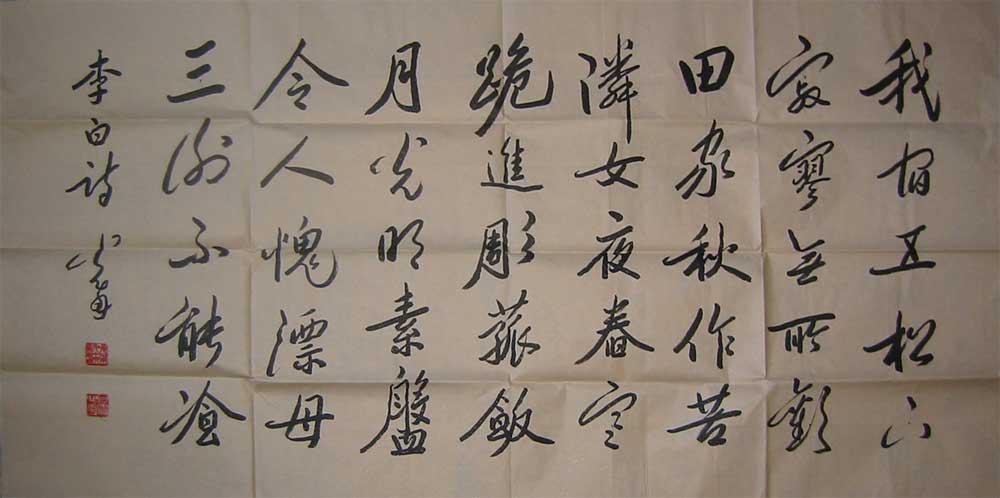 我宿五松下
寂寥無所歡
田家秋作苦
隣女夜舂寒
跪進彫菰飯
月光明素盤
令人愧漂母
三谢不能飡
李白詩